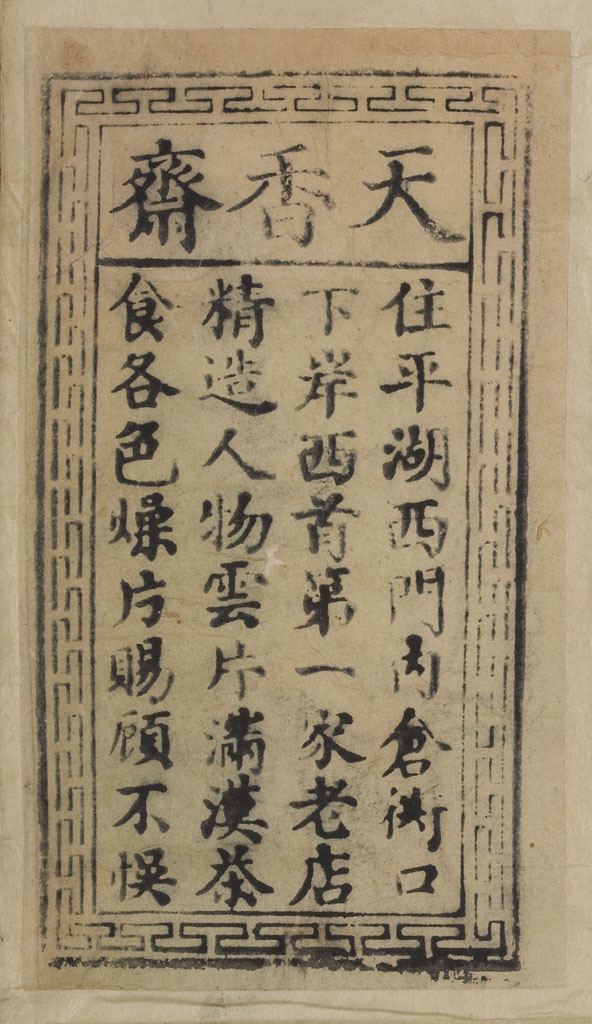 天香齋
住平湖西門內倉衖口
下岸西首第一家老店
精造人物雲片滿漢茶
食各色燥片賜顧不悞